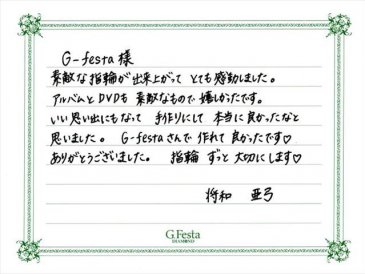 G-festa 様
素敵な指輪が出来上がって とても感動しました。
アルバムとDVDも 素敵なもので 嬉しかったです。
いい思い出にもなって 手作りにして 本当に良かったなと
思いました。 G-festaさんで 作れて 良かったです♡
ありがとうございました。 指輪 ずっと 大切にします♡
将和 亜弓
G.Festa
DIAMOND